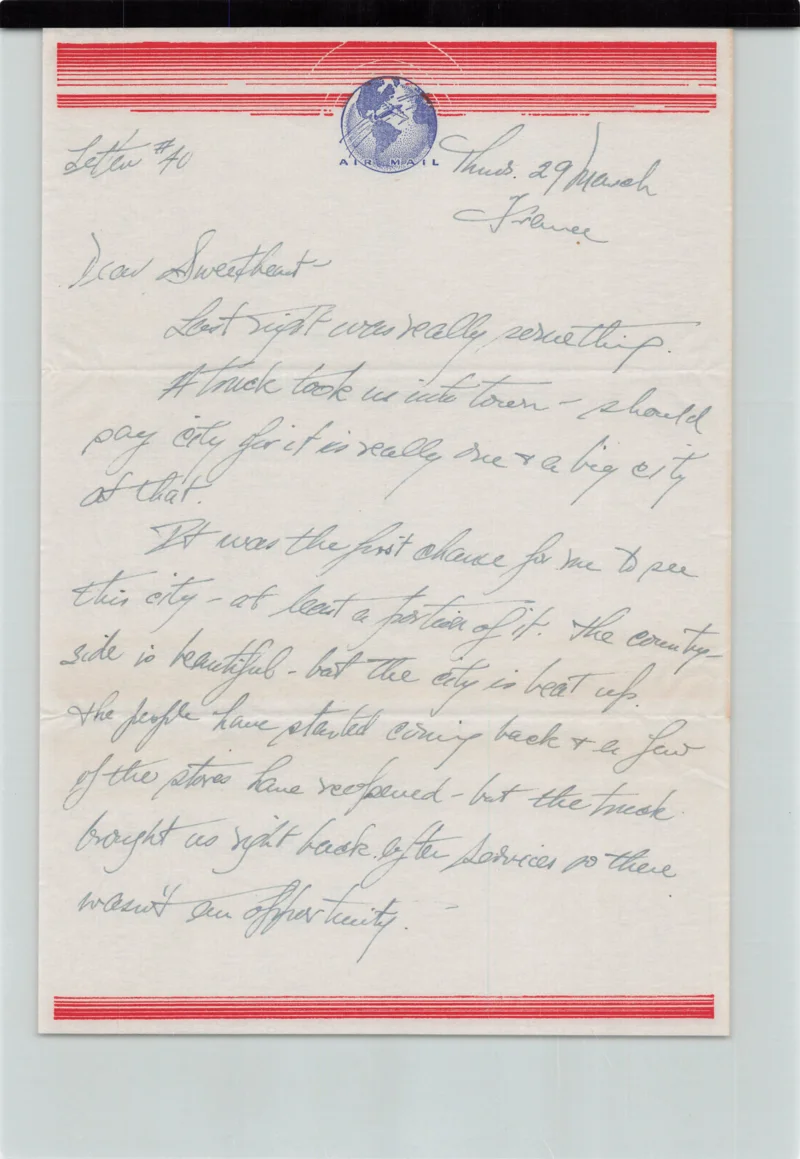 AIR MAIL
Letter #40
Thurs. 29 March
France
Dear Sweetheart-
Last night was really something.
A truck took us into town - should
say city for it is really one & a big city
at that.
It was the first chance for me to see
this city - at least a portion of it. The country-
side is beautiful - but the city is beat up.
The people have started coming back & a few
of the stores have reopened - but the truck
brought us right back after services so there
wasn't an opportunity. -